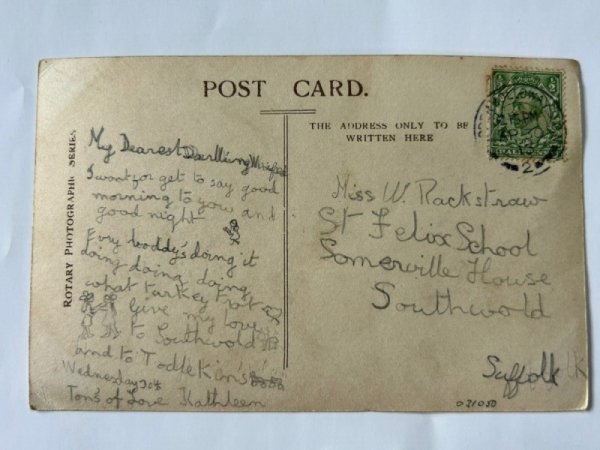 POST CARD.
THE ADDRESS ONLY TO BE
WRITTEN HERE
ROTARY PHOTOGRAPHIC SERIES
My Dearest Darlling Winifred
I wont for get to say good
morning to you and
good night
Evry boddy's doing it
doing doing doing
what turkey trot
Give my love
to Southwold
and to Todlekins
Wednesday 30th
Tons of Love Kathleen
Miss W. Rackstraw
St Felix School
Somerville House
Southwold
Suffolk
031050